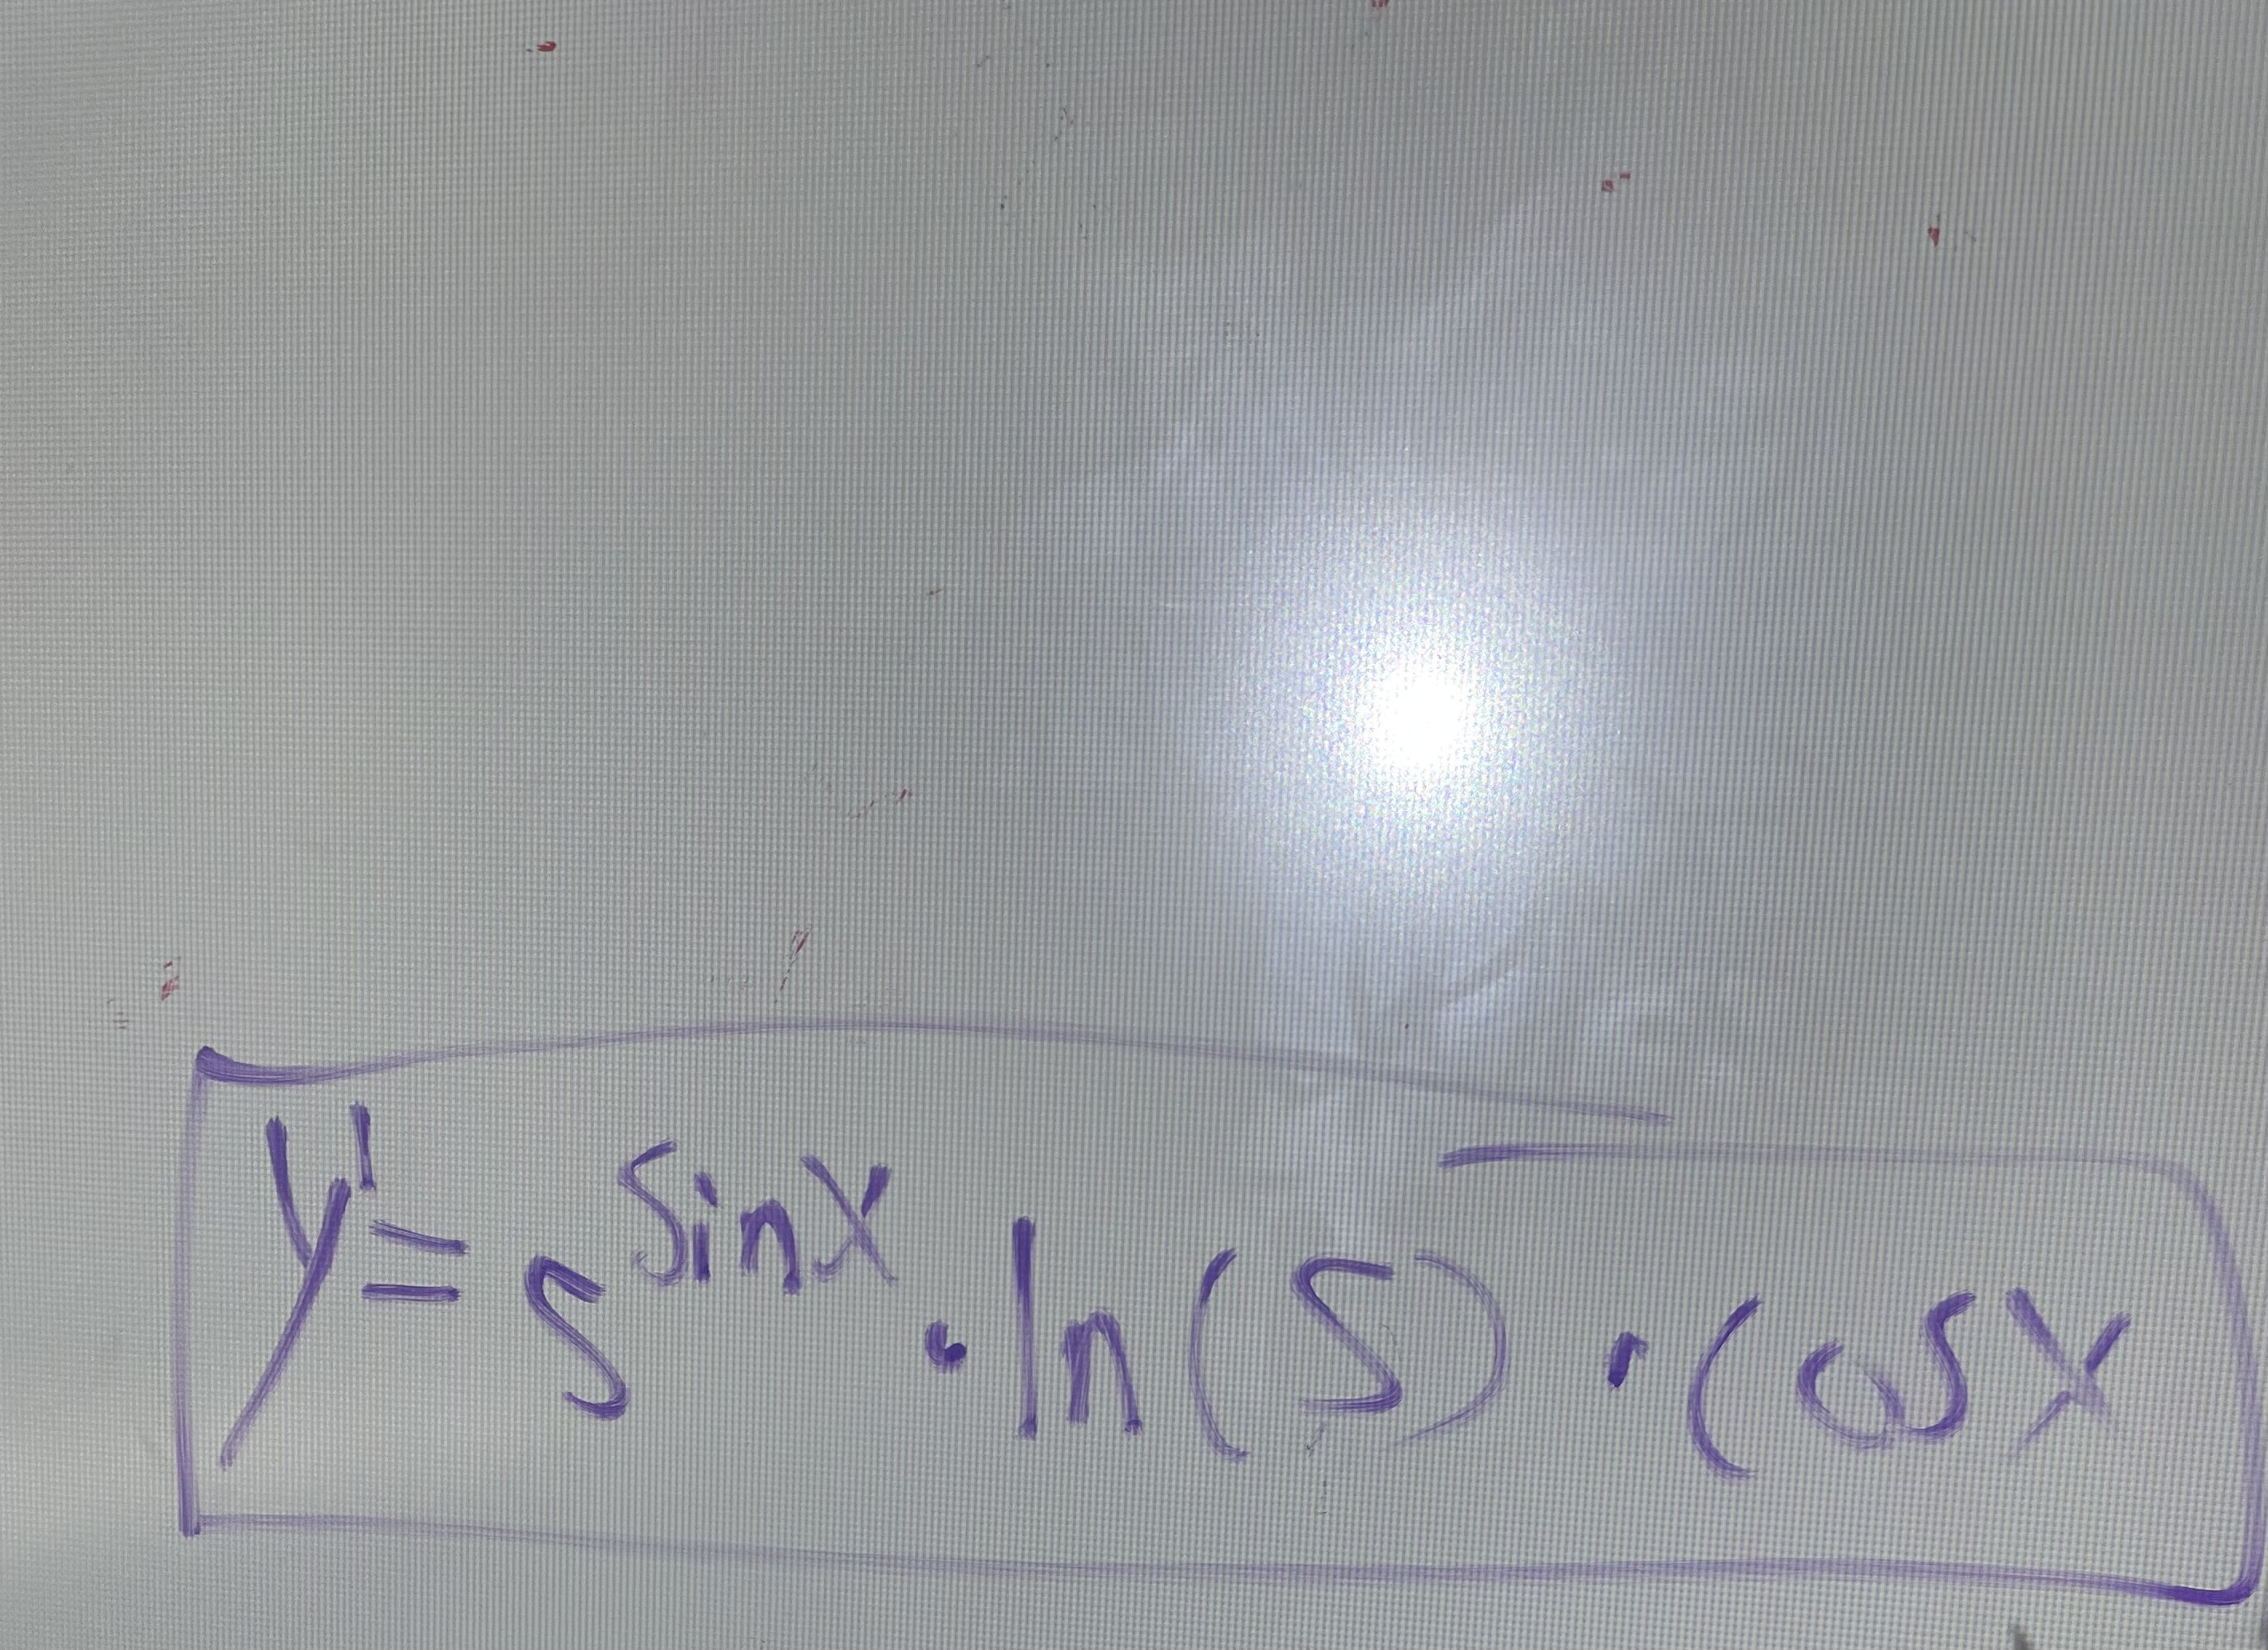 y' = 5^sinx · ln(5) · cosx